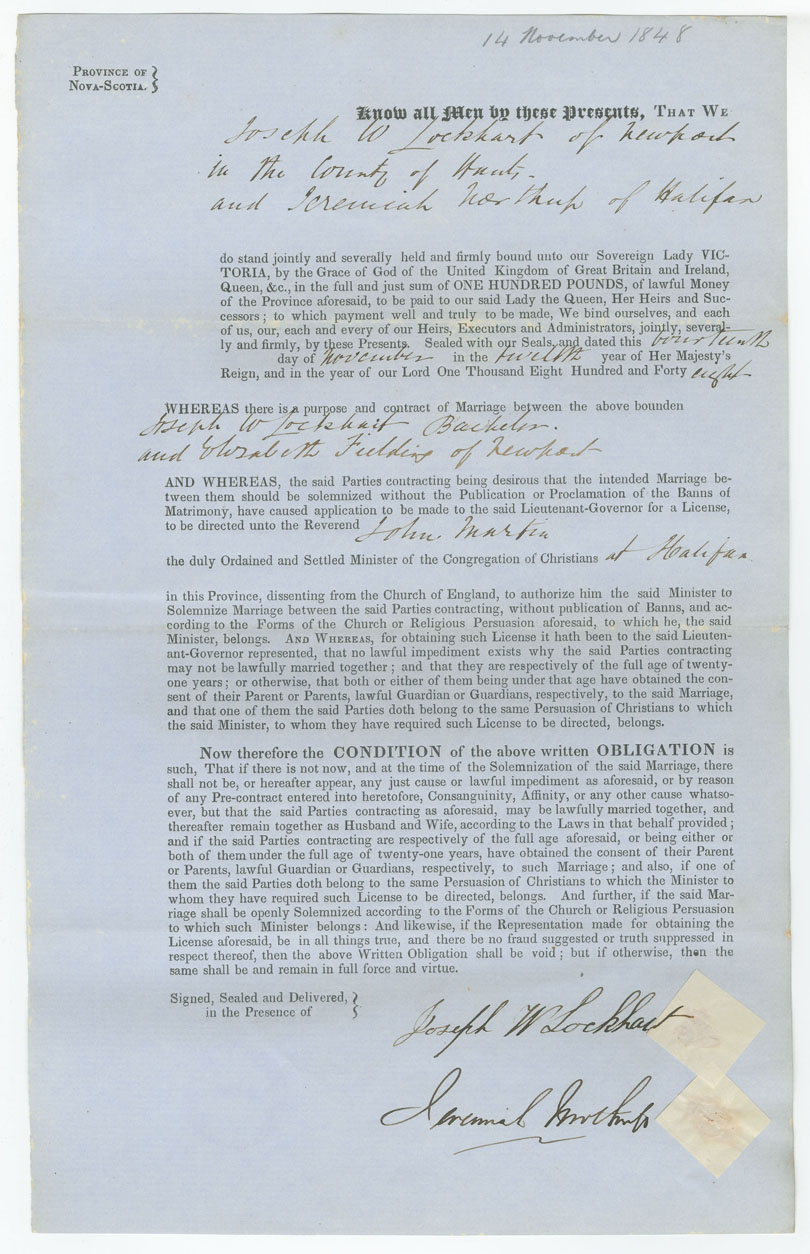 14 November 1848
PROVINCE OF
NOVA-SCOTIA.
Know all Men by these Presents, THAT WE
Joseph W Lockhart of Newport
in the County of Hants -
and Jeremiah Northup of Halifax
do stand jointly and severally held and firmly bound unto our Sovereign Lady VIC-
TORIA, by the Grace of God of the United Kingdom of Great Britain and Ireland,
Queen, &c., in the full and just sum of ONE HUNDRED POUNDS, of lawful Money
of the Province aforesaid, to be paid to our said Lady the Queen, Her Heirs and Suc-
cessors; to which payment well and truly to be made, We bind ourselves, and each
of us, our, each and every of our Heirs, Executors and Administrators, jointly, several-
ly and firmly, by these Presents. Sealed with our Seals, and dated this fourteenth
day of November in the twelfth year of Her Majesty's
Reign, and in the year of our Lord One Thousand Eight Hundred and Forty eight
WHEREAS there is a purpose and contract of Marriage between the above bounden
Joseph W Lockhart Bachelor.
and Elizabeth Fielding of Newport
AND WHEREAS, the said Parties contracting being desirous that the intended Marriage be-
tween them should be solemnized without the Publication or Proclamation of the Banns of
Matrimony, have caused application to be made to the said Lieutenant-Governor for a License,
to be directed unto the Reverend John Martin
the duly Ordained and Settled Minister of the Congregation of Christians at Halifax
in this Province, dissenting from the Church of England, to authorize him the said Minister to
Solemnize Marriage between the said Parties contracting, without publication of Banns, and ac-
cording to the Forms of the Church or Religious Persuasion aforesaid, to which he, the said
Minister, belongs. AND WHEREAS, for obtaining such License it hath been to the said Lieuten-
ant-Governor represented, that no lawful impediment exists why the said Parties contracting
may not be lawfully married together; and that they are respectively of the full age of twenty-
one years; or otherwise, that both or either of them being under that age have obtained the con-
sent of their Parent or Parents, lawful Guardian or Guardians, respectively, to the said Marriage,
and that one of them the said Parties doth belong to the same Persuasion of Christians to which
the said Minister, to whom they have required such License to be directed, belongs.
Now therefore the CONDITION of the above written OBLIGATION is
such, That if there is not now, and at the time of the Solemnization of the said Marriage, there
shall not be, or hereafter appear, any just cause or lawful impediment as aforesaid, or by reason
of any Pre-contract entered into heretofore, Consanguinity, Affinity, or any other cause whatso-
ever, but that the said Parties contracting as aforesaid, may be lawfully married together, and
thereafter remain together as Husband and Wife, according to the Laws in that behalf provided;
and if the said Parties contracting are respectively of the full age aforesaid, or being either or
both of them under the full age of twenty-one years, have obtained the consent of their Parent
or Parents, lawful Guardian or Guardians, respectively, to such Marriage; and also, if one of
them the said Parties doth belong to the same Persuasion of Christians to which the Minister to
whom they have required such License to be directed, belongs. And further, if the said Mar-
riage shall be openly Solemnized according to the Forms of the Church or Religious Persuasion
to which such Minister belongs: And likewise, if the Representation made for obtaining the
License aforesaid, be in all things true, and there be no fraud suggested or truth suppressed in
respect thereof, then the above Written Obligation shall be void; but if otherwise, then the
same shall be and remain in full force and virtue.
Signed, Sealed and Delivered,
in the Presence of
Joseph W Lockhart
Jeremiah Northup